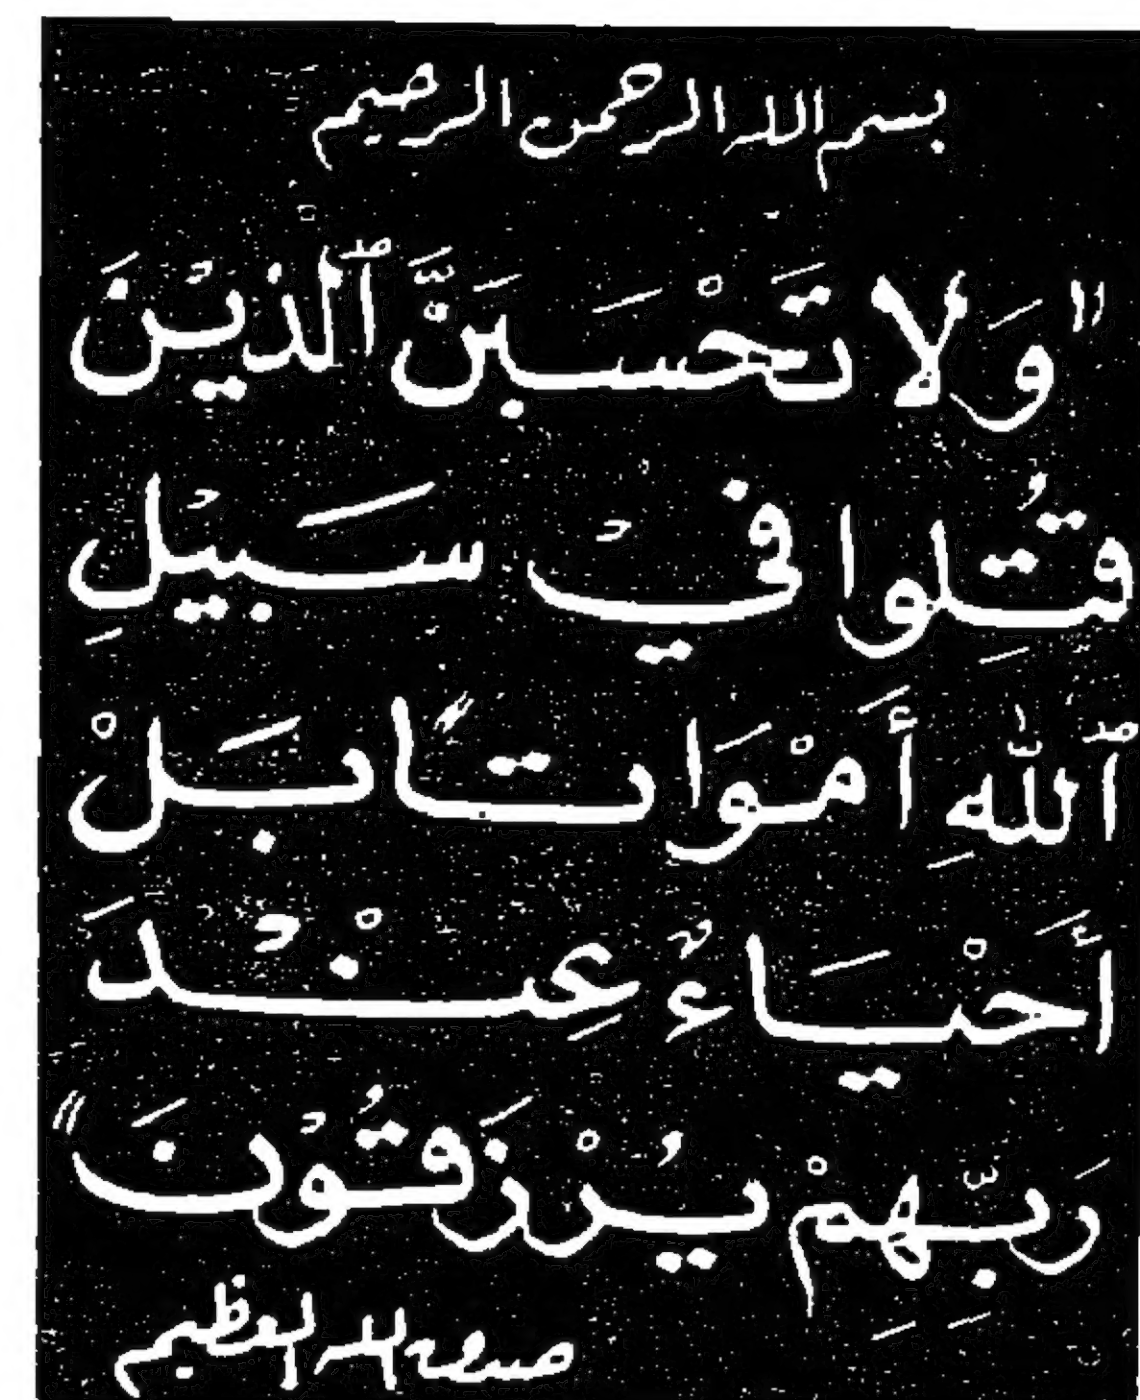 بسم الله الرحمن الرحيم
"وَلا تَحْسَبَنَّ ٱلَّذِيْنَ
قُتِلُوا فِيْ سَبِيْلِ
ٱللَّهِ أَمْوَاتًا بَلْ
أَحْيَاءٌ عِنْدَ
رَبِّهِمْ يُرْزَقُوْنَ"
صدق الله العظيم